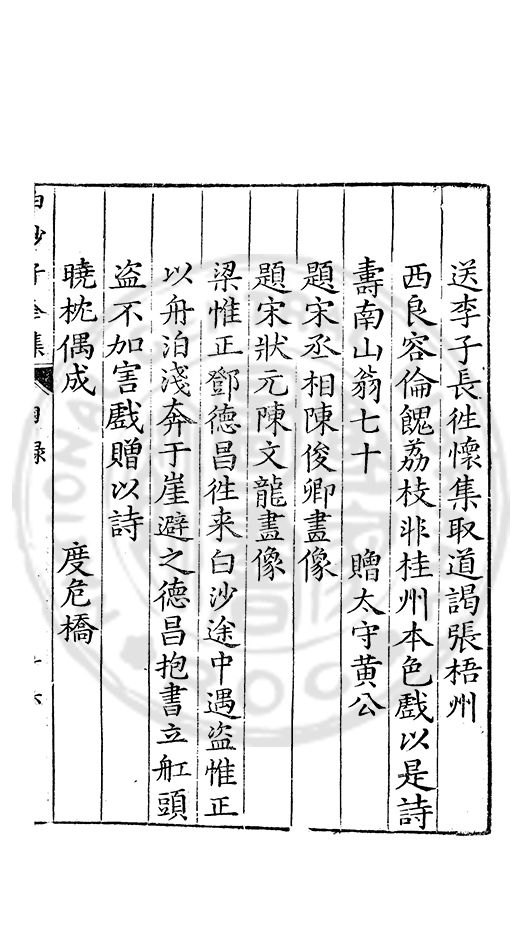 送李子長徃懷集取道謁張梧州
西良容倫餽荔枝非桂州本色戲以是詩
壽南山翁七十　贈太守黃公
題宋丞相陳俊卿畫像
題宋狀元陳文龍畫像
梁惟正鄧德昌徃来白沙途中遇盗惟正
以舟泊淺奔于崖避之德昌抱書立舡頭
盗不加害戲贈以詩
曉枕偶成　度危橋
白沙子全集　目録　十六